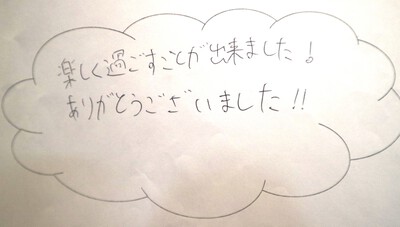 楽しく過ごすことが出来ました!
ありがとうございました!!